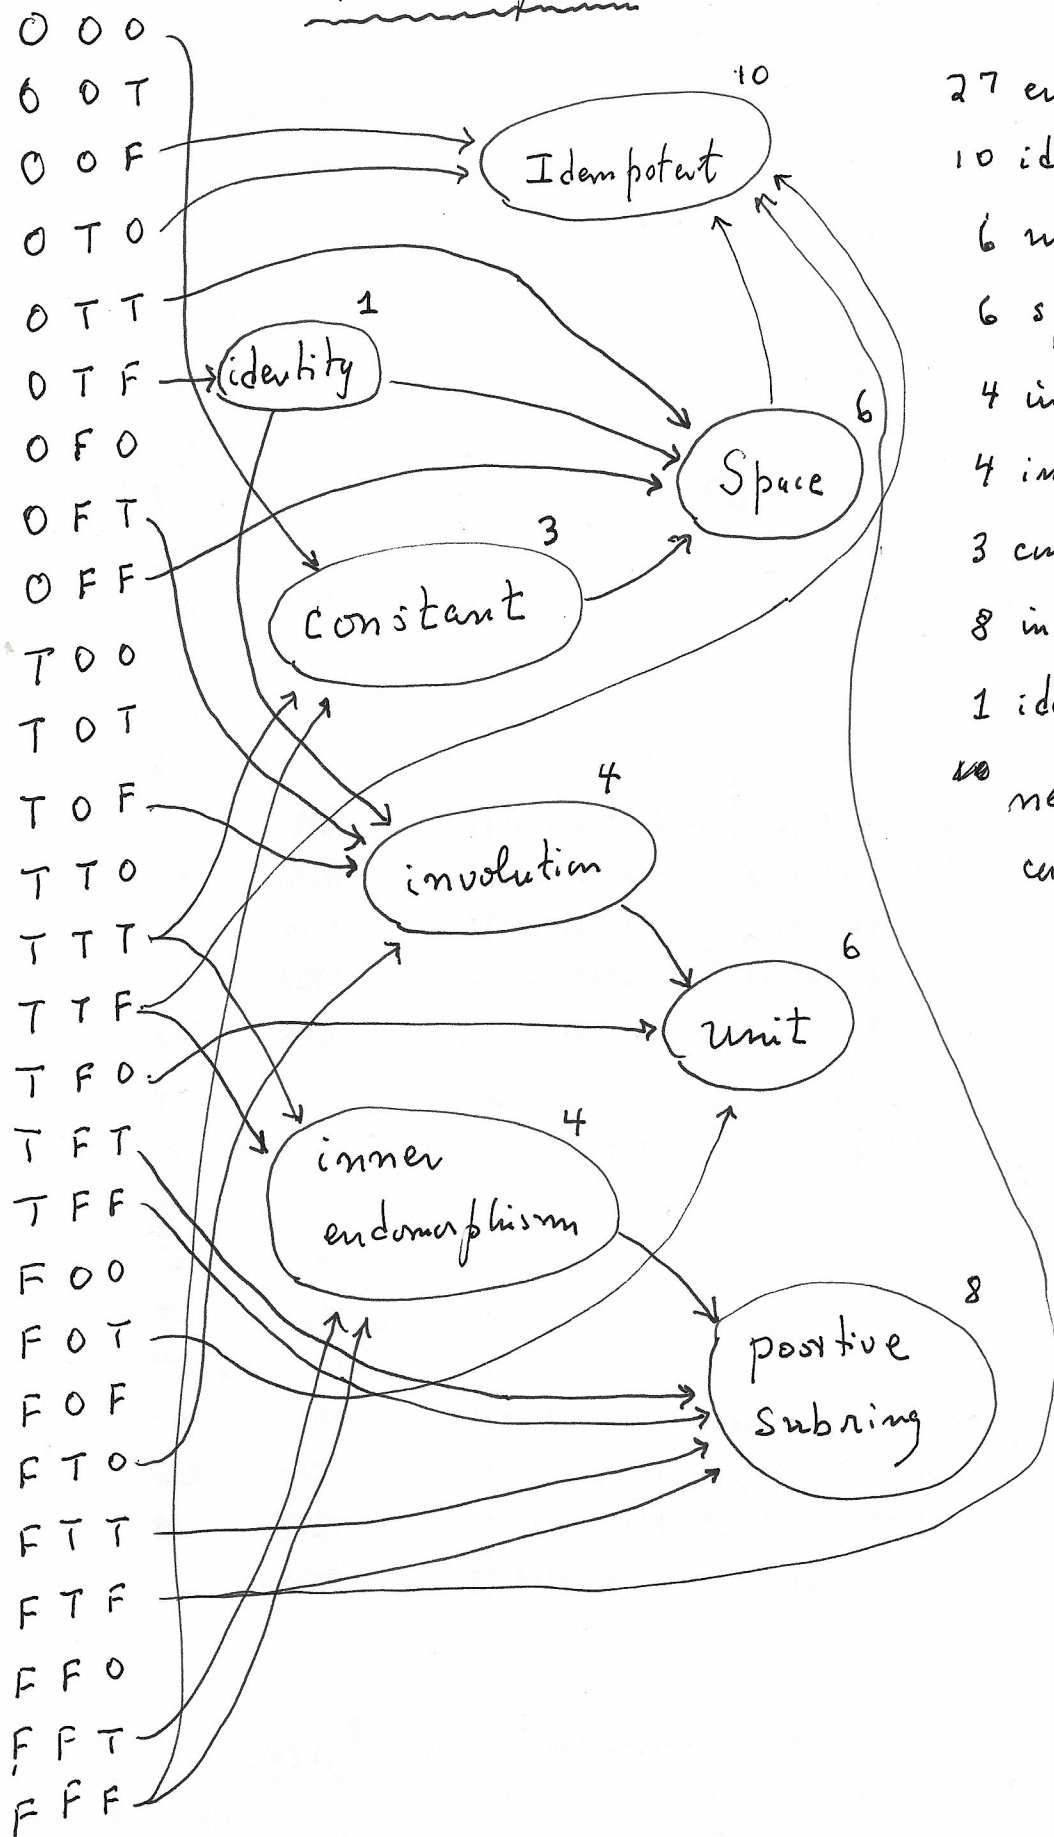 0 0 0
0 0 T
0 0 F
0 T 0
0 T T
0 T F
0 F 0
0 F T
0 F F
T 0 0
T 0 T
T 0 F
T T 0
T T T
T T F
T F 0
T F T
T F F
F 0 0
F 0 T
F 0 F
F T 0
F T T
F T F
F F 0
F F T
F F F
10
Idempotent
1
identity
6
Space
3
constant
4
involution
6
unit
4
inner
endomorphism
8
positive
subring
27 en
10 id
6
6 s
4 in
4 in
3
8 in
1 ide
ne